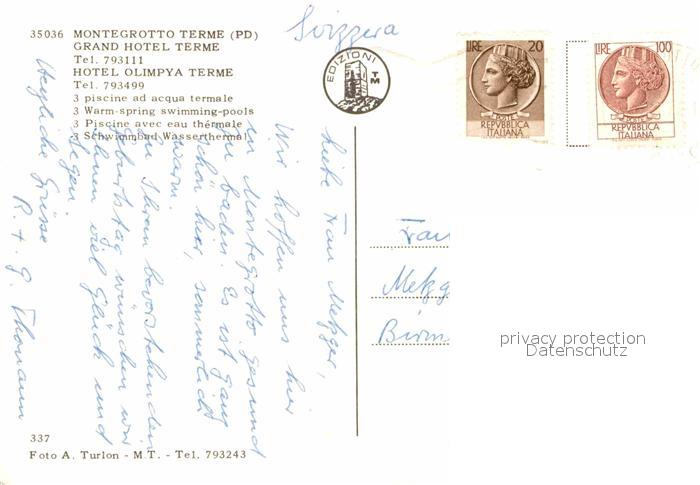 35036 MONTEGROTTO TERME (PD)
GRAND HOTEL TERME
Tel. 793111
HOTEL OLIMPYA TERME
Tel. 793499
3 piscine ad acqua termale
3 Warm-spring swimming-pools
3 Piscine avec eau thérmale
3 Schwimmbad-Wasserthermal
Svizzera
EDIZIONI
TM
LIRE 20
POSTE
REPVBBLICA
ITALIANA
LIRE 100
POSTE
REPVBBLICA
ITALIANA
Liebe Frau Metzger,
Wir hoffen uns hier
in Montegrotto gesund
zu baden. Es ist ganz
schön hier, sommerlich
warm.
Zu Ihrem bevorstehenden
Geburtstag wünschen wir
Ihnen viel Glück und
Segen
Herzliche Grüsse
R. + G. Thomann
Frau
Metzg
Birm
privacy protection
Datenschutz
337
Foto A. Turlon - M T. - Tel. 793243